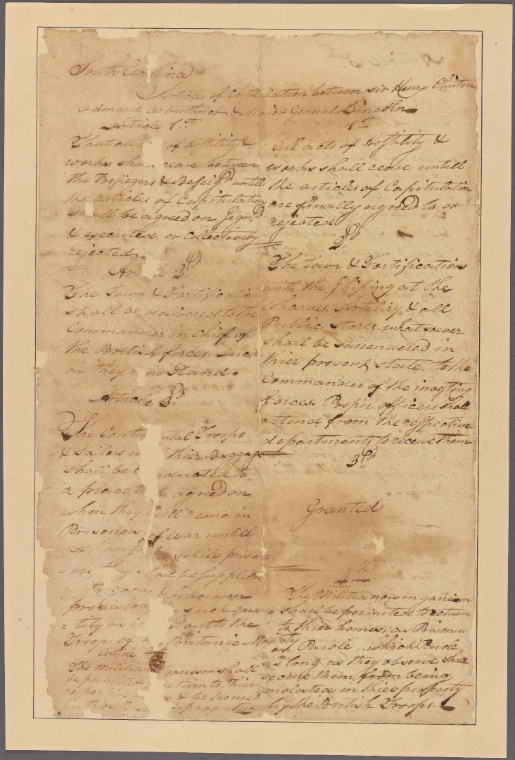 South Carolina
Articles of Capitulation between sir Henry Clinton
Admiral Arbuthnot & Major General Lincoln
Article 1st
That all of Hostility &
works shall cease between
the Besiegers & Besieg'd untill
the articles of Capitulation
shall be agreed on, Sign'd
& executed, or Collectively
rejected
2d
The Town & Fortifications
shall be delivered to the
Commander in Chief of
the British forces, such
as they now Stand
Article 3d
The Continental Troops
& Sailors Thier Baggage
shall be to
a place to agreed on
where they shall remain
Prisoners of war untill
they shall be supplied
provisions
such
the
Troop of Britanic
The Militia garrison shall
be permitted return to thier
& be secured
1st
All acts of Hostility &
works shall cease, untill
the articles of Capitulation
are finally agreed to or
rejected
2d
The Town & Fortifications
with the Shiping at the
Wharves, artillery, & all
Public stores whatsoever
shall be surrendered in
thier present state, to the
Commander of the
forces. Proper officers shall
attend from the respective
departments to receive them
3d
Granted
4th
The Militia now in garrison
shall be permitted to return
to thier homes, as Prisoners
on Parole, which Parole
as long as they observe shall
secure them from being
molested in thier property
by the British Troops